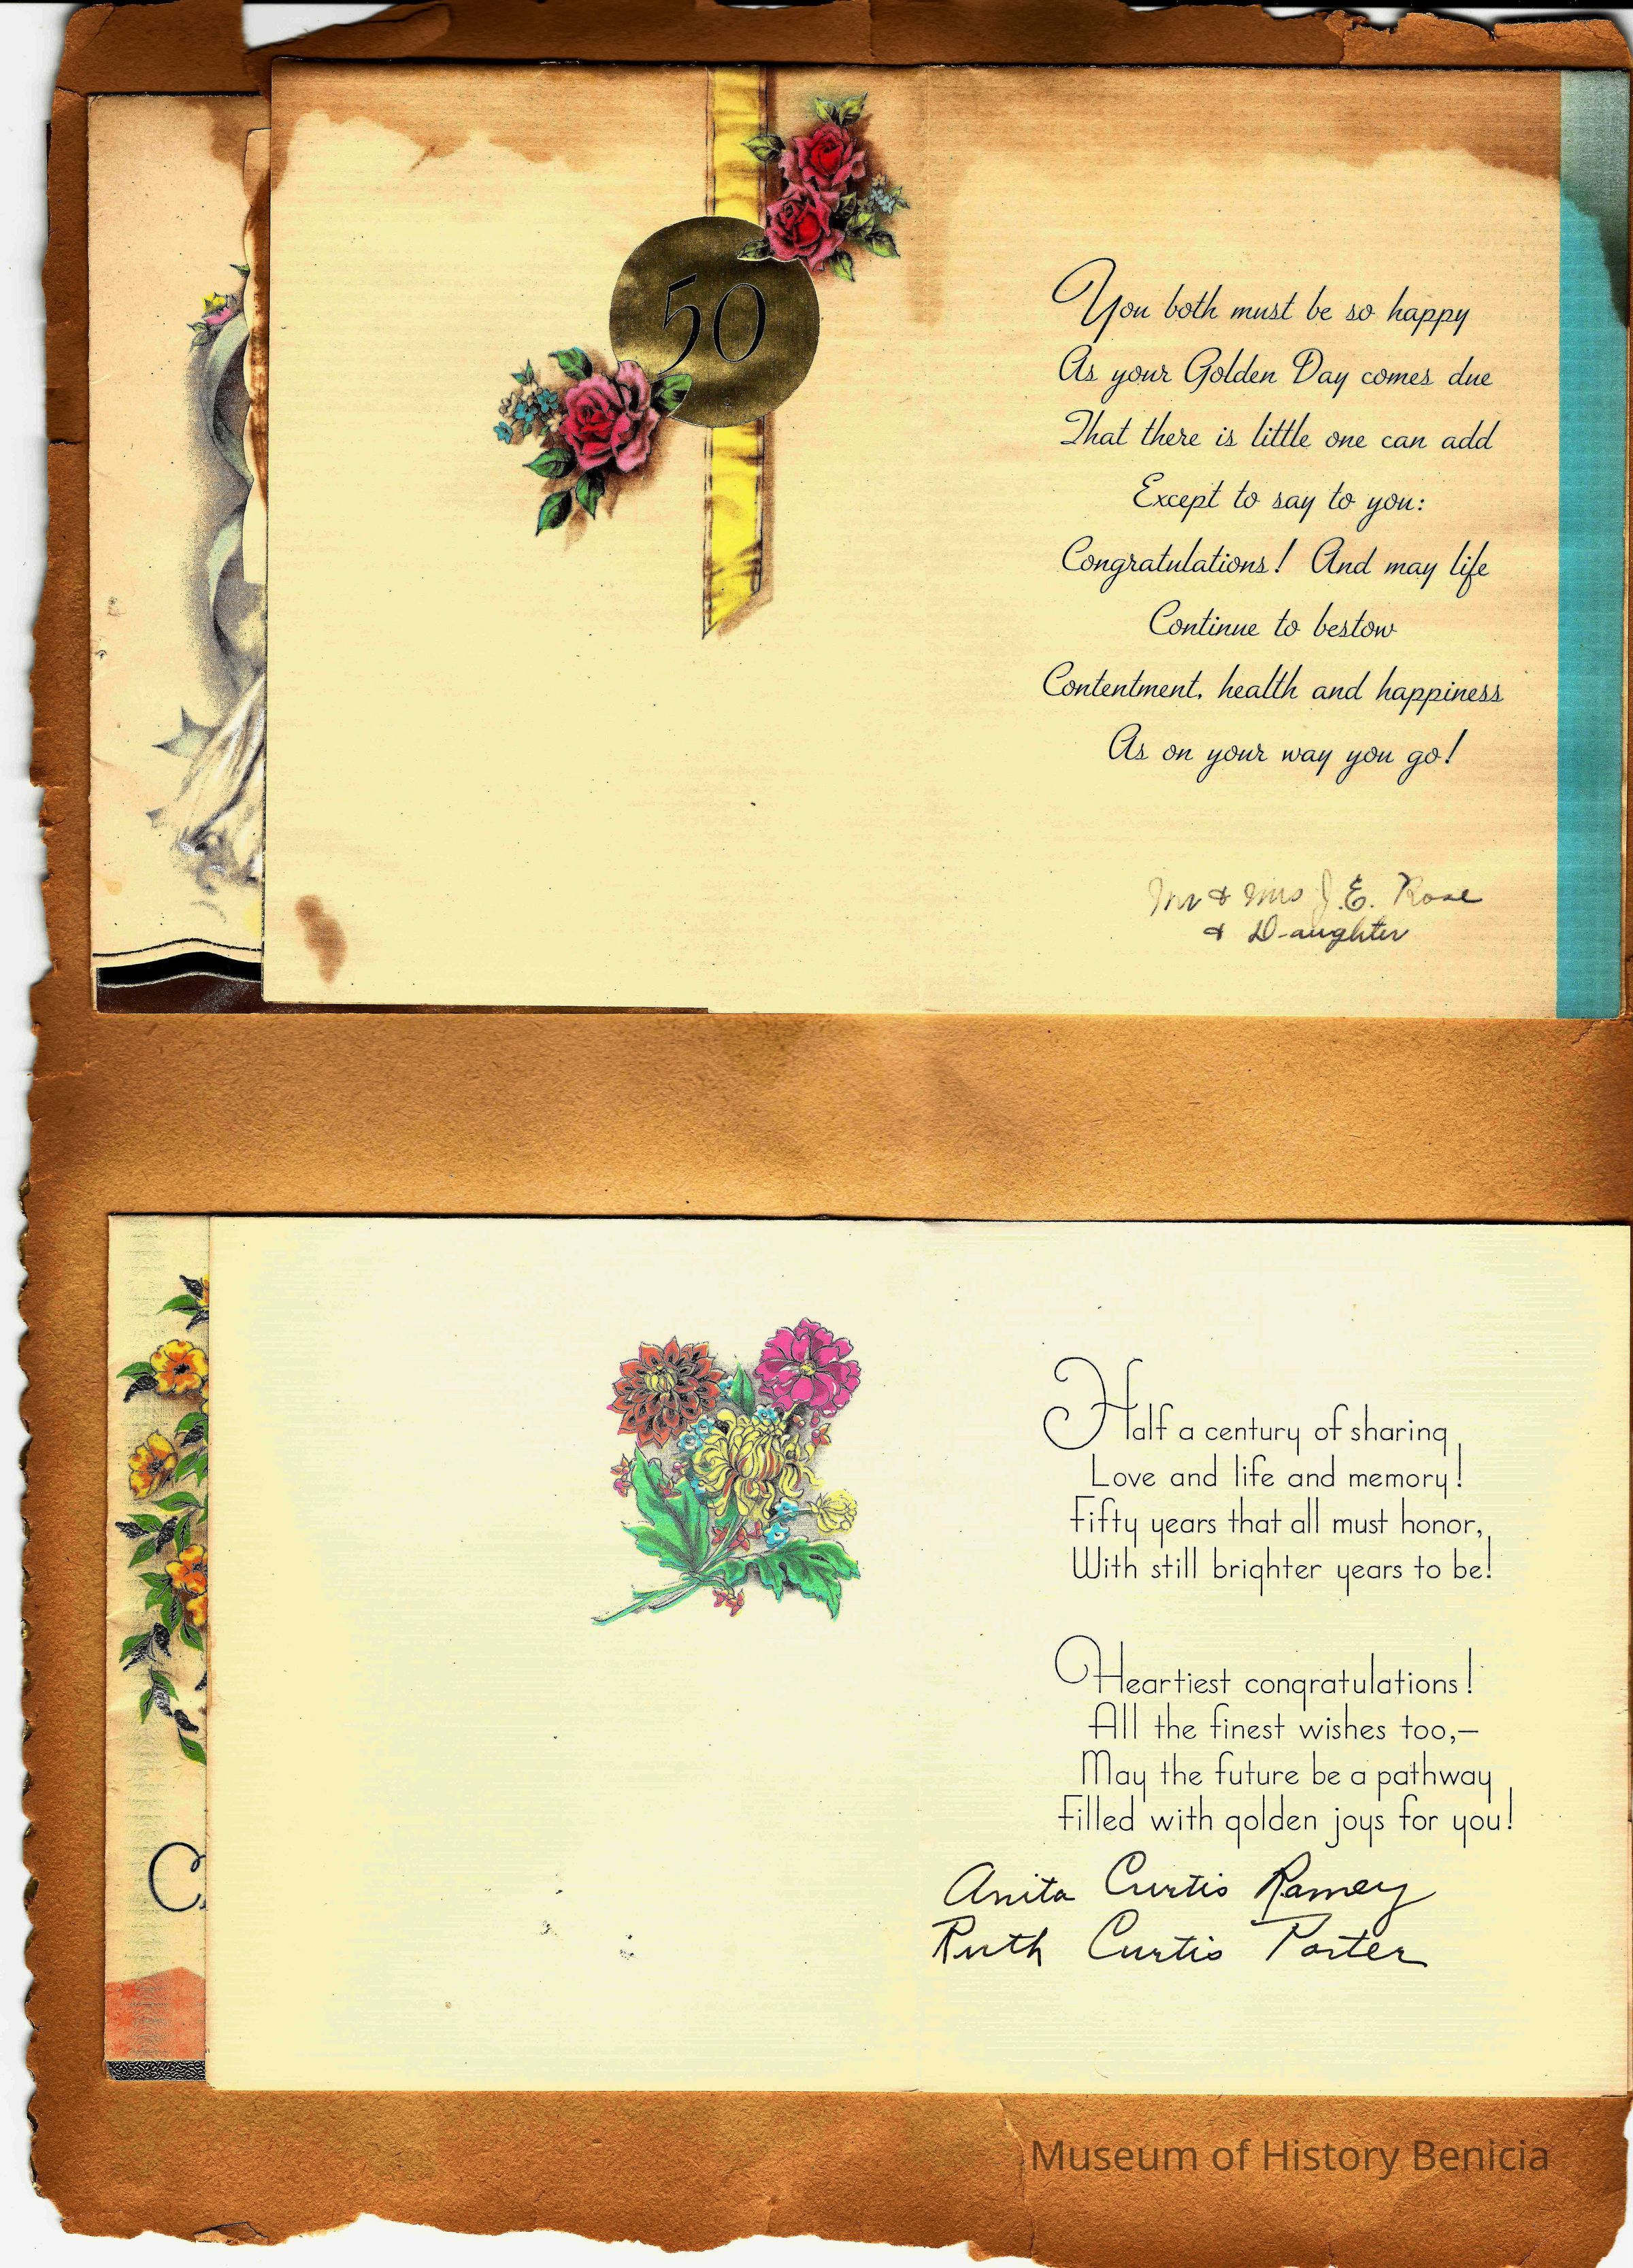 50
You both must be so happy
As your Golden Day comes due
That there is little one can add
Except to say to you:
Congratulations! And may life
Continue to bestow
Contentment, health and happiness
As on your way you go!
Mr & Mrs J. E. Rose
& Daughter
Half a century of sharing
Love and life and memory!
Fifty years that all must honor,
With still brighter years to be!
Heartiest congratulations!
All the finest wishes too,—
May the future be a pathway
Filled with golden joys for you!
C
Anita Curtis Ramey
Ruth Curtis Porter
Museum of History Benicia